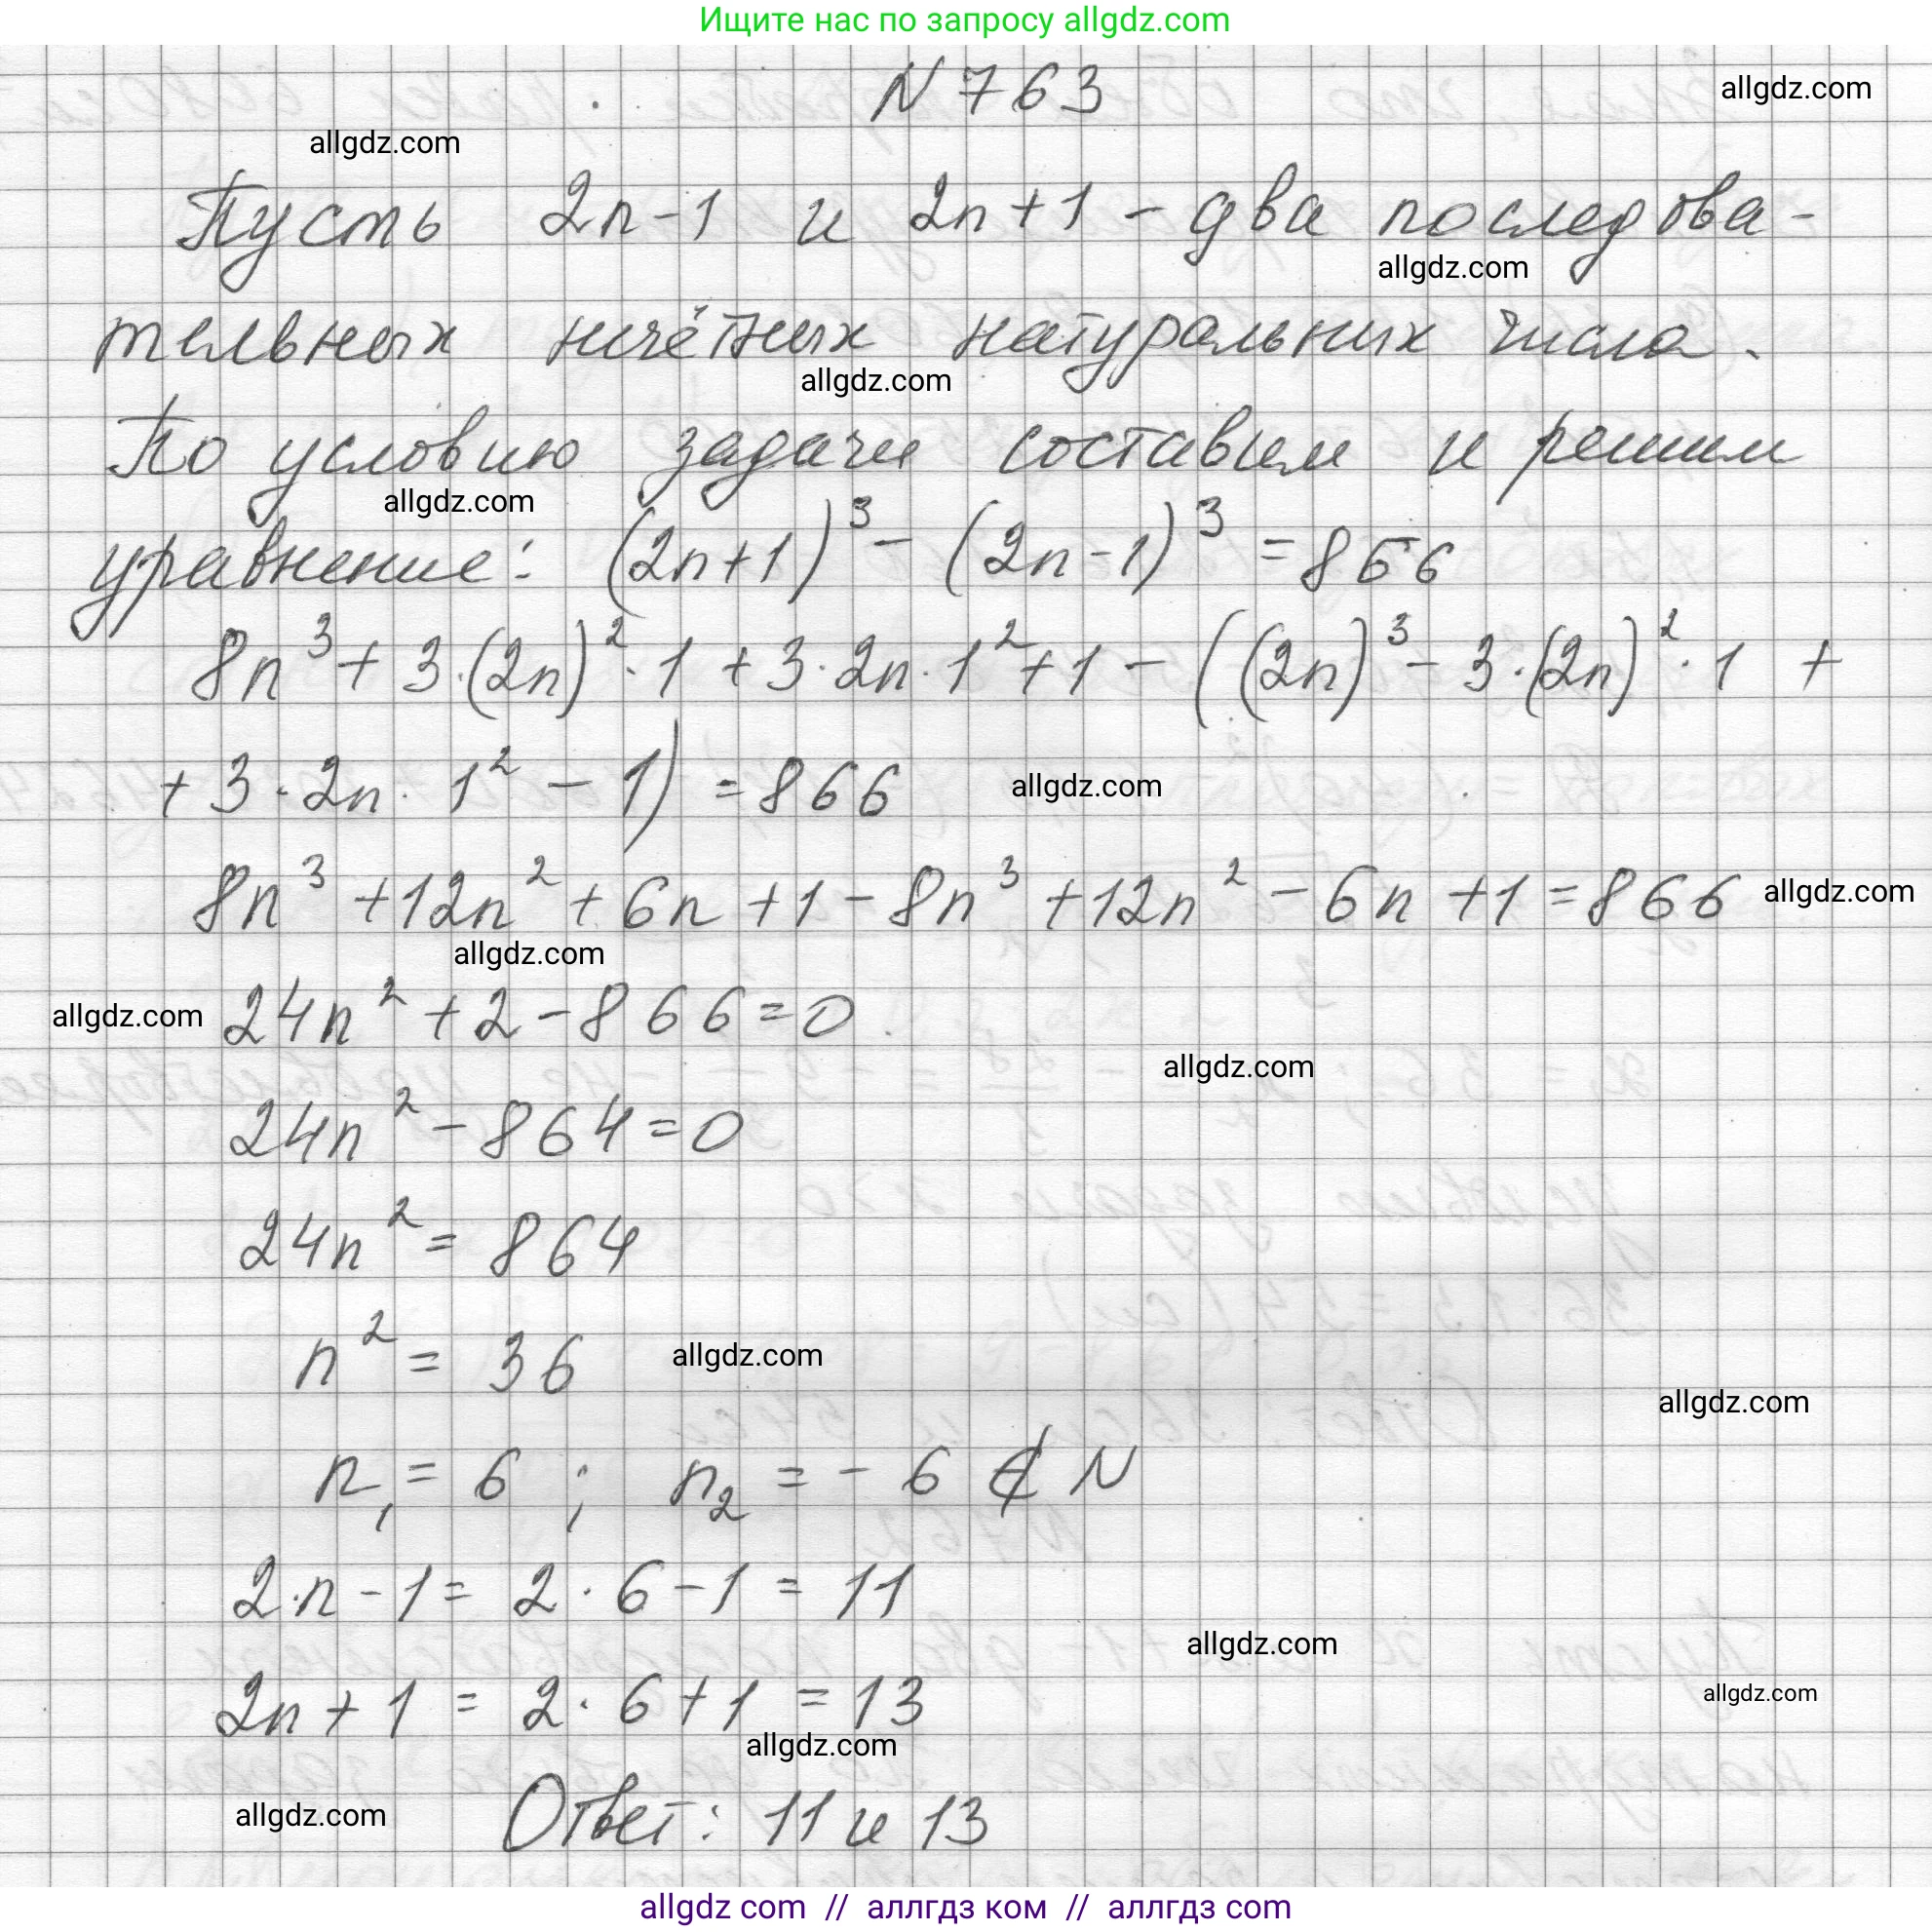 Ищите нас по запросу allgdz.com
N 763
allgdz.com
allgdz.com
Пусть 2n-1 и 2n+1 - два последова-
allgdz.com
тельных нечётных натуральных числа.
allgdz.com
По условию задачи составим и решим
allgdz.com
уравнение: (2n+1)³ - (2n-1)³ = 866
8n³ + 3·(2n)²·1 + 3·2n·1² + 1 - ((2n)³ - 3·(2n)²·1 +
+ 3·2n·1² - 1) = 866
allgdz.com
8n³ + 12n² + 6n + 1 - 8n³ + 12n² - 6n + 1 = 866
allgdz.com
allgdz.com
allgdz.com
24n² + 2 - 866 = 0
allgdz.com
24n² - 864 = 0
24n² = 864
n² = 36
allgdz.com
allgdz.com
n₁ = 6 ; n₂ = - 6 ∉ N
2·n - 1 = 2·6 - 1 = 11
allgdz.com
2n + 1 = 2·6 + 1 = 13
allgdz.com
allgdz.com
allgdz.com
Ответ: 11 и 13
allgdz.com // аллгдз ком // аллгдз com